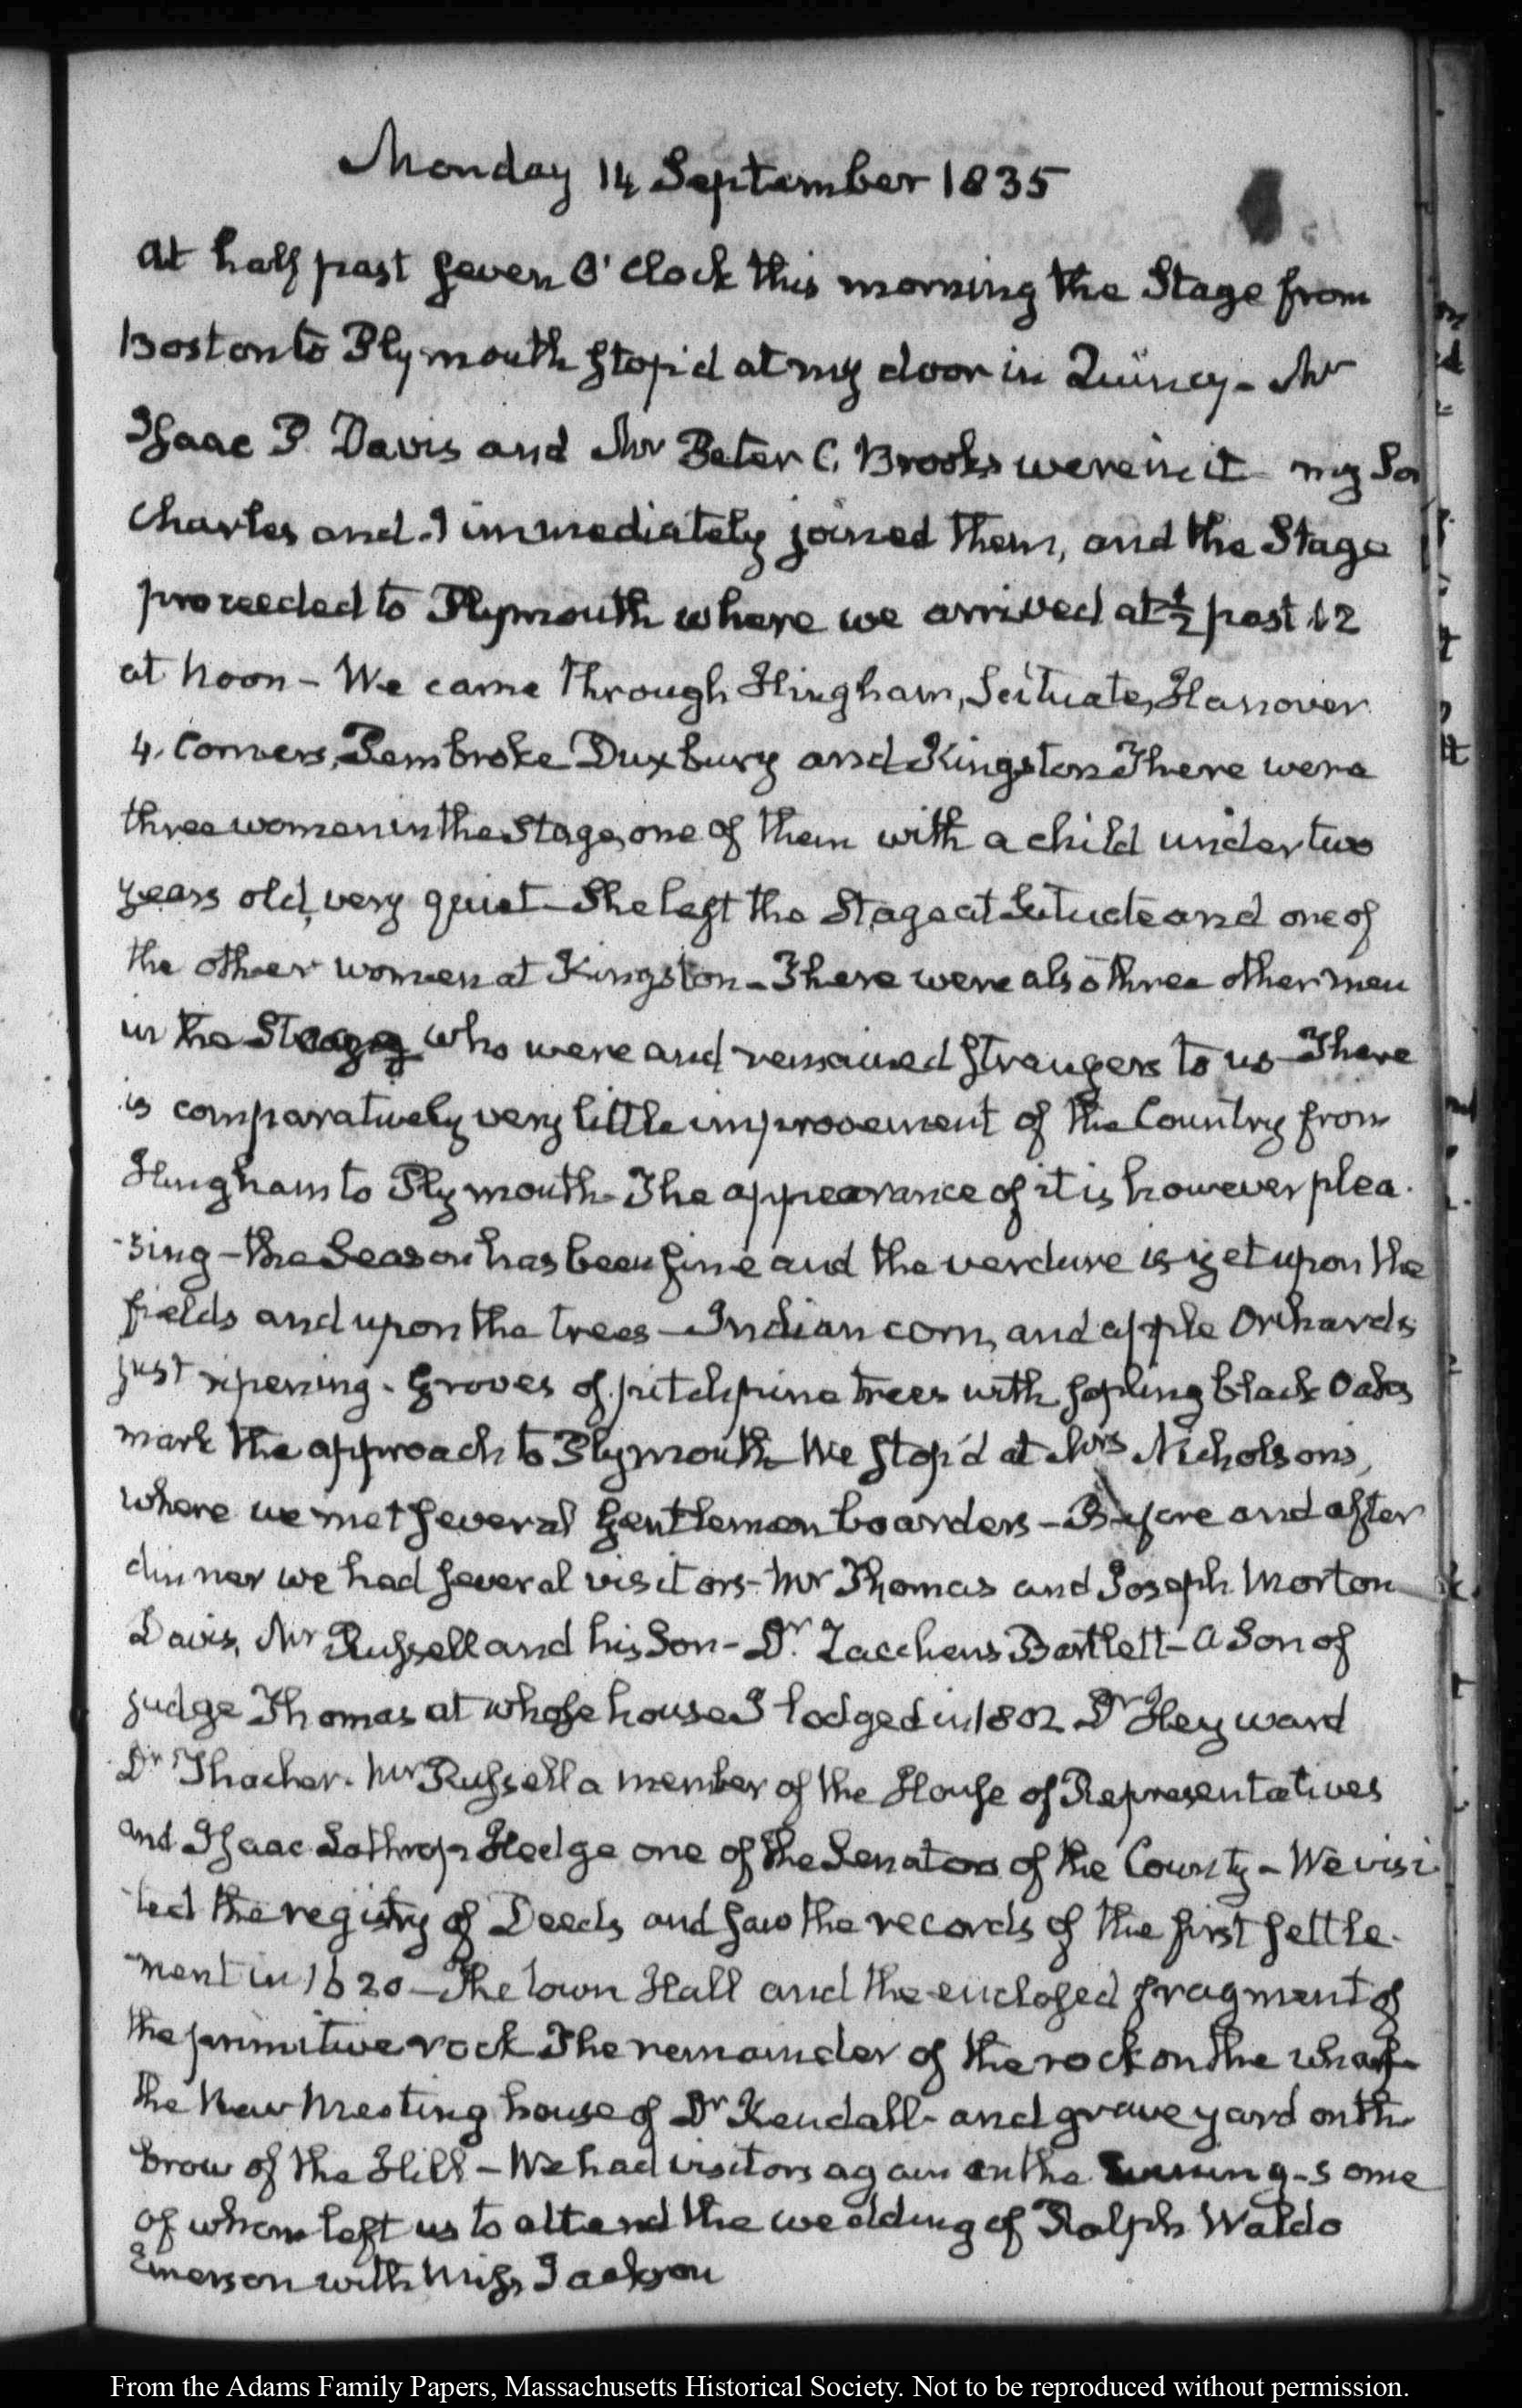 Monday 14 September 1835
At half past seven O'Clock this morning the Stage from
Boston to Plymouth stop'd at my door in Quincy - Mr
Isaac P. Davis and Mr Peter C. Brooks were in it - my So
Charles and I immediately joined them, and the Stage
proceeded to Plymouth where we arrived at ½ past 12
at noon - We came through Hingham, Scituate, Hanover
4. Corners, Pembroke Duxbury and Kingston There were
three women in the Stage, one of them with a child under two
years old, very quiet - She left the Stage at Scituate and one of
the other women at Kingston - There were also three other men
in the Stage who were and remained strangers to us - There
is comparatively very little improvement of the Country from
Hingham to Plymouth - The appearance of it is however plea-
-sing - the Season has been fine and the verdure is yet upon the
fields and upon the trees - Indian corn, and apple Orchards
just ripening - Groves of pitch pine trees with sapling black Oaks
mark the approach to Plymouth - We stop'd at Mrs Nicholson's,
where we met several Gentlemen boarders - Before and after
dinner we had several visitors - Mr Thomas and Joseph Morton
Davis, Mr Russell and his Son - Dr. Zaccheus Bartlett - A Son of
judge Thomas at whose house I lodged in 1802 Dr Heyward
Dr Thacher - Mr Russell a member of the House of Representatives
and Isaac Lothrop Hedge one of the Senators of the County - We visi-
-ted the registry of Deeds and saw the records of the first settle-
-ment in 1620 - The Town Hall and the enclosed fragment of
the primitive rock The remainder of the rock on the wharf -
the New Meeting house of Dr Kendall - and grave yard on the
brow of the Hill - We had visitors again in the Evening - some
of whom left us to attend the wedding of Ralph Waldo
Emerson with Miss Jackson
From the Adams Family Papers, Massachusetts Historical Society. Not to be reproduced without permission.